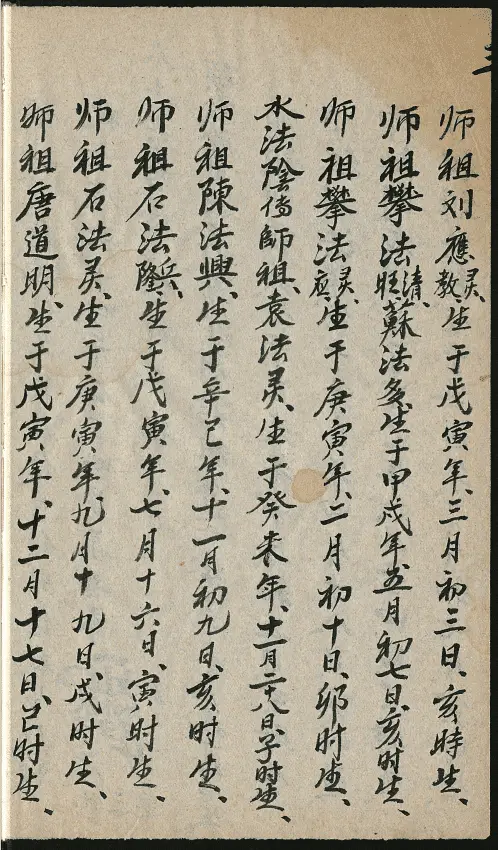 师祖刘應灵教、生于戊寅年、三月初三日、亥時生、
师祖攀法清旺、蘇法多生于甲戌年五月初七日、亥时生、
师祖攀法灵应、生于庚寅年、二月初十日、卯时生、
水法陰傳師祖、袁法灵、生于癸未年、十一月二十八日、子时生、
师祖陳法興、生于辛巳年、十一月初九日、亥时生、
师祖石法兵隆、生于戊寅年、七月十六日、寅时生、
师祖石法灵、生于庚寅年、九月十九日、戌时生、
师祖唐道明、生于戊寅年、十二月十七日、巳时生、